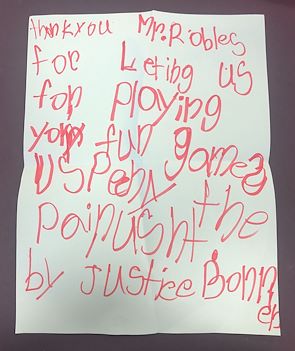 thankyou Mr. Riobles
for Leting us
for playing
your fun games
USPeahy
Painusht the
by Justice Bonn
er